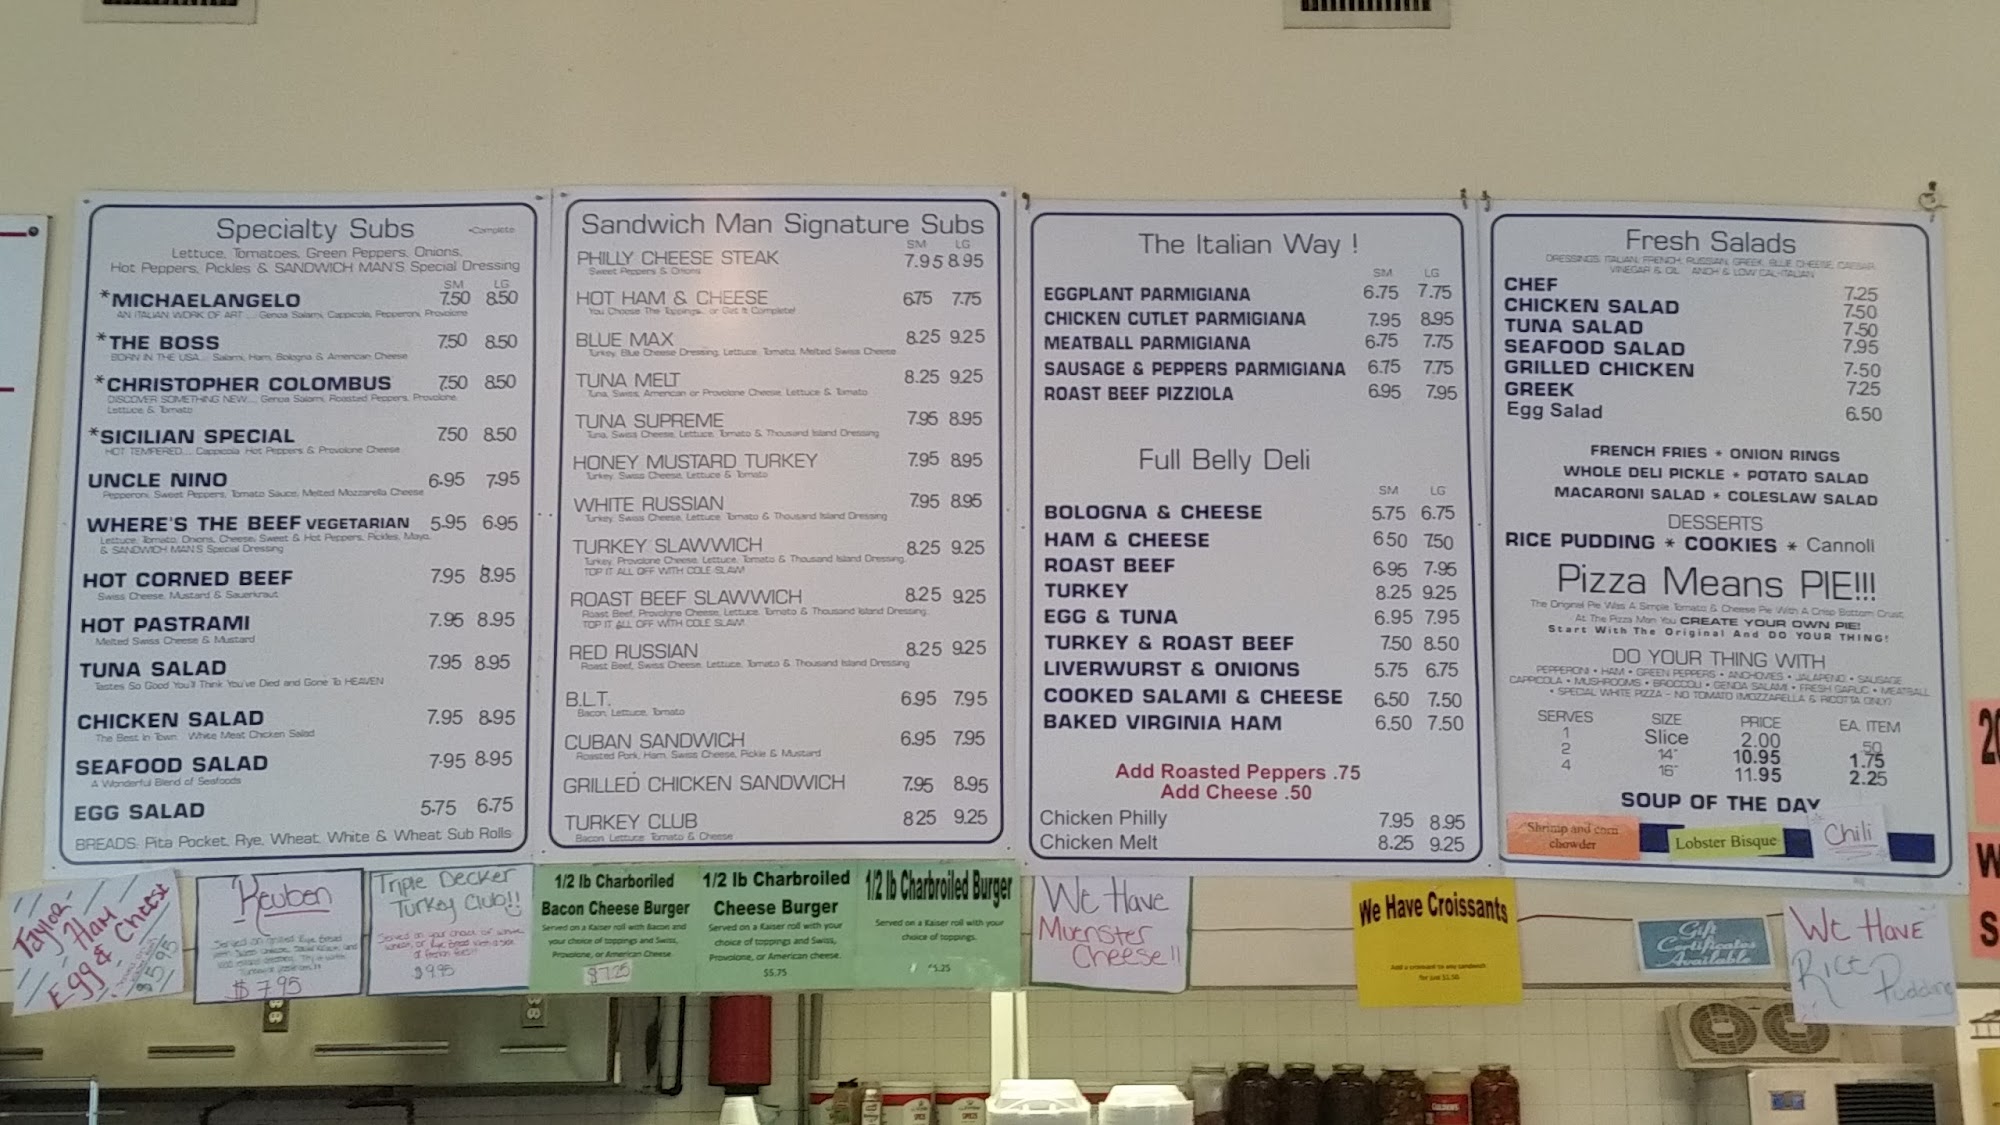 Specialty Subs
*Complete
Lettuce, Tomatoes, Green Peppers, Onions,
Hot Peppers, Pickles & SANDWICH MAN'S Special Dressing
SM LG
*MICHAELANGELO 7.50 8.50
AN ITALIAN WORK OF ART.... Genoa Salami, Cappicola, Pepperoni, Provolone
*THE BOSS 7.50 8.50
BORN IN THE USA.... Salami, Ham, Bologna & American Cheese
*CHRISTOPHER COLOMBUS 7.50 8.50
DISCOVER SOMETHING NEW.... Genoa Salami, Roasted Peppers, Provolone,
Lettuce & Tomato
*SICILIAN SPECIAL 7.50 8.50
HOT TEMPERED.... Cappicola Hot Peppers & Provolone Cheese
UNCLE NINO 6.95 7.95
Pepperoni, Sweet Peppers, Tomato Sauce, Melted Mozzarella Cheese
WHERE'S THE BEEF VEGETARIAN 5.95 6.95
Lettuce, Tomato, Onions, Cheese, Sweet & Hot Peppers, Pickles, Mayo,
& SANDWICH MAN'S Special Dressing
HOT CORNED BEEF 7.95 8.95
Swiss Cheese, Mustard & Sauerkraut
HOT PASTRAMI 7.95 8.95
Melted Swiss Cheese & Mustard
TUNA SALAD 7.95 8.95
Tastes So Good You'll Think You've Died and Gone To HEAVEN
CHICKEN SALAD 7.95 8.95
The Best In Town White Meat Chicken Salad
SEAFOOD SALAD 7.95 8.95
A Wonderful Blend of Seafoods
EGG SALAD 5.75 6.75
BREADS: Pita Pocket, Rye, Wheat, White & Wheat Sub Rolls
Sandwich Man Signature Subs
SM LG
PHILLY CHEESE STEAK 7.95 8.95
Sweet Peppers & Onions
HOT HAM & CHEESE 6.75 7.75
You Choose The Toppings... or Get It Complete!
BLUE MAX 8.25 9.25
Turkey, Blue Cheese Dressing, Lettuce, Tomato, Melted Swiss Cheese
TUNA MELT 8.25 9.25
Tuna, Swiss, American or Provolone Cheese, Lettuce & Tomato
TUNA SUPREME 7.95 8.95
Tuna, Swiss Cheese, Lettuce, Tomato & Thousand Island Dressing
HONEY MUSTARD TURKEY 7.95 8.95
Turkey, Swiss Cheese, Lettuce & Tomato
WHITE RUSSIAN 7.95 8.95
Turkey, Swiss Cheese, Lettuce, Tomato & Thousand Island Dressing
TURKEY SLAWWICH 8.25 9.25
Turkey, Provolone Cheese, Lettuce, Tomato & Thousand Island Dressing,
TOP IT ALL OFF WITH COLE SLAW!
ROAST BEEF SLAWWICH 8.25 9.25
Roast Beef, Provolone Cheese, Lettuce, Tomato & Thousand Island Dressing,
TOP IT ALL OFF WITH COLE SLAW!
RED RUSSIAN 8.25 9.25
Roast Beef, Swiss Cheese, Lettuce, Tomato & Thousand Island Dressing
B.L.T. 6.95 7.95
Bacon, Lettuce, Tomato
CUBAN SANDWICH 6.95 7.95
Roasted Pork, Ham, Swiss Cheese, Pickle & Mustard
GRILLED CHICKEN SANDWICH 7.95 8.95
TURKEY CLUB 8.25 9.25
Bacon Lettuce Tomato & Cheese
The Italian Way !
SM LG
EGGPLANT PARMIGIANA 6.75 7.75
CHICKEN CUTLET PARMIGIANA 7.95 8.95
MEATBALL PARMIGIANA 6.75 7.75
SAUSAGE & PEPPERS PARMIGIANA 6.75 7.75
ROAST BEEF PIZZIOLA 6.95 7.95
Full Belly Deli
SM LG
BOLOGNA & CHEESE 5.75 6.75
HAM & CHEESE 6.50 7.50
ROAST BEEF 6.95 7.95
TURKEY 8.25 9.25
EGG & TUNA 6.95 7.95
TURKEY & ROAST BEEF 7.50 8.50
LIVERWURST & ONIONS 5.75 6.75
COOKED SALAMI & CHEESE 6.50 7.50
BAKED VIRGINIA HAM 6.50 7.50
Add Roasted Peppers .75
Add Cheese .50
Chicken Philly 7.95 8.95
Chicken Melt 8.25 9.25
Fresh Salads
DRESSINGS: ITALIAN, FRENCH, RUSSIAN, GREEK, BLUE CHEESE, CAESAR,
VINEGAR & OIL & LOW CAL-ITALIAN
CHEF 7.25
CHICKEN SALAD 7.50
TUNA SALAD 7.50
SEAFOOD SALAD 7.95
GRILLED CHICKEN 7.50
GREEK 7.25
Egg Salad 6.50
FRENCH FRIES * ONION RINGS
WHOLE DELI PICKLE * POTATO SALAD
MACARONI SALAD * COLESLAW SALAD
DESSERTS
RICE PUDDING * COOKIES * Cannoli
Pizza Means PIE!!!
The Original Pie Was A Simple Tomato & Cheese Pie With A Crisp Bottom Crust.
At The Pizza Man You CREATE YOUR OWN PIE!
Start With The Original And DO YOUR THING!
DO YOUR THING WITH
PEPPERONI • HAM • GREEN PEPPERS • ANCHOVIES • JALAPENO • SAUSAGE
CAPPICOLA • MUSHROOMS • BROCCOLI • GENOA SALAMI • FRESH GARLIC • MEATBALL
• SPECIAL WHITE PIZZA - NO TOMATO (MOZZARELLA & RICOTTA ONLY)
SERVES SIZE PRICE EA. ITEM
1 Slice 2.00 .50
2 14" 10.95 1.75
4 16" 11.95 2.25
SOUP OF THE DAY
Shrimp and corn
chowder
Lobster Bisque
Chili
Taylor
Ham
Egg & Cheese
$5.95
Reuben
$7.95
Triple Decker
Turkey Club!!
$9.95
1/2 lb Charboriled
Bacon Cheese Burger
Served on a Kaiser roll with Bacon and
your choice of toppings and Swiss,
Provolone, or American Cheese
$7.25
1/2 lb Charbroiled
Cheese Burger
Served on a Kaiser roll with your
choice of toppings and Swiss,
Provolone, or American cheese.
$5.75
1/2 lb Charbroiled Burger
Served on a Kaiser roll with your
choice of toppings.
We Have
Muenster
Cheese!!
We Have Croissants
Add a croissant to any sandwich
for just $1.50
Gift
Certificates
Available
We Have
Rice
Pudding